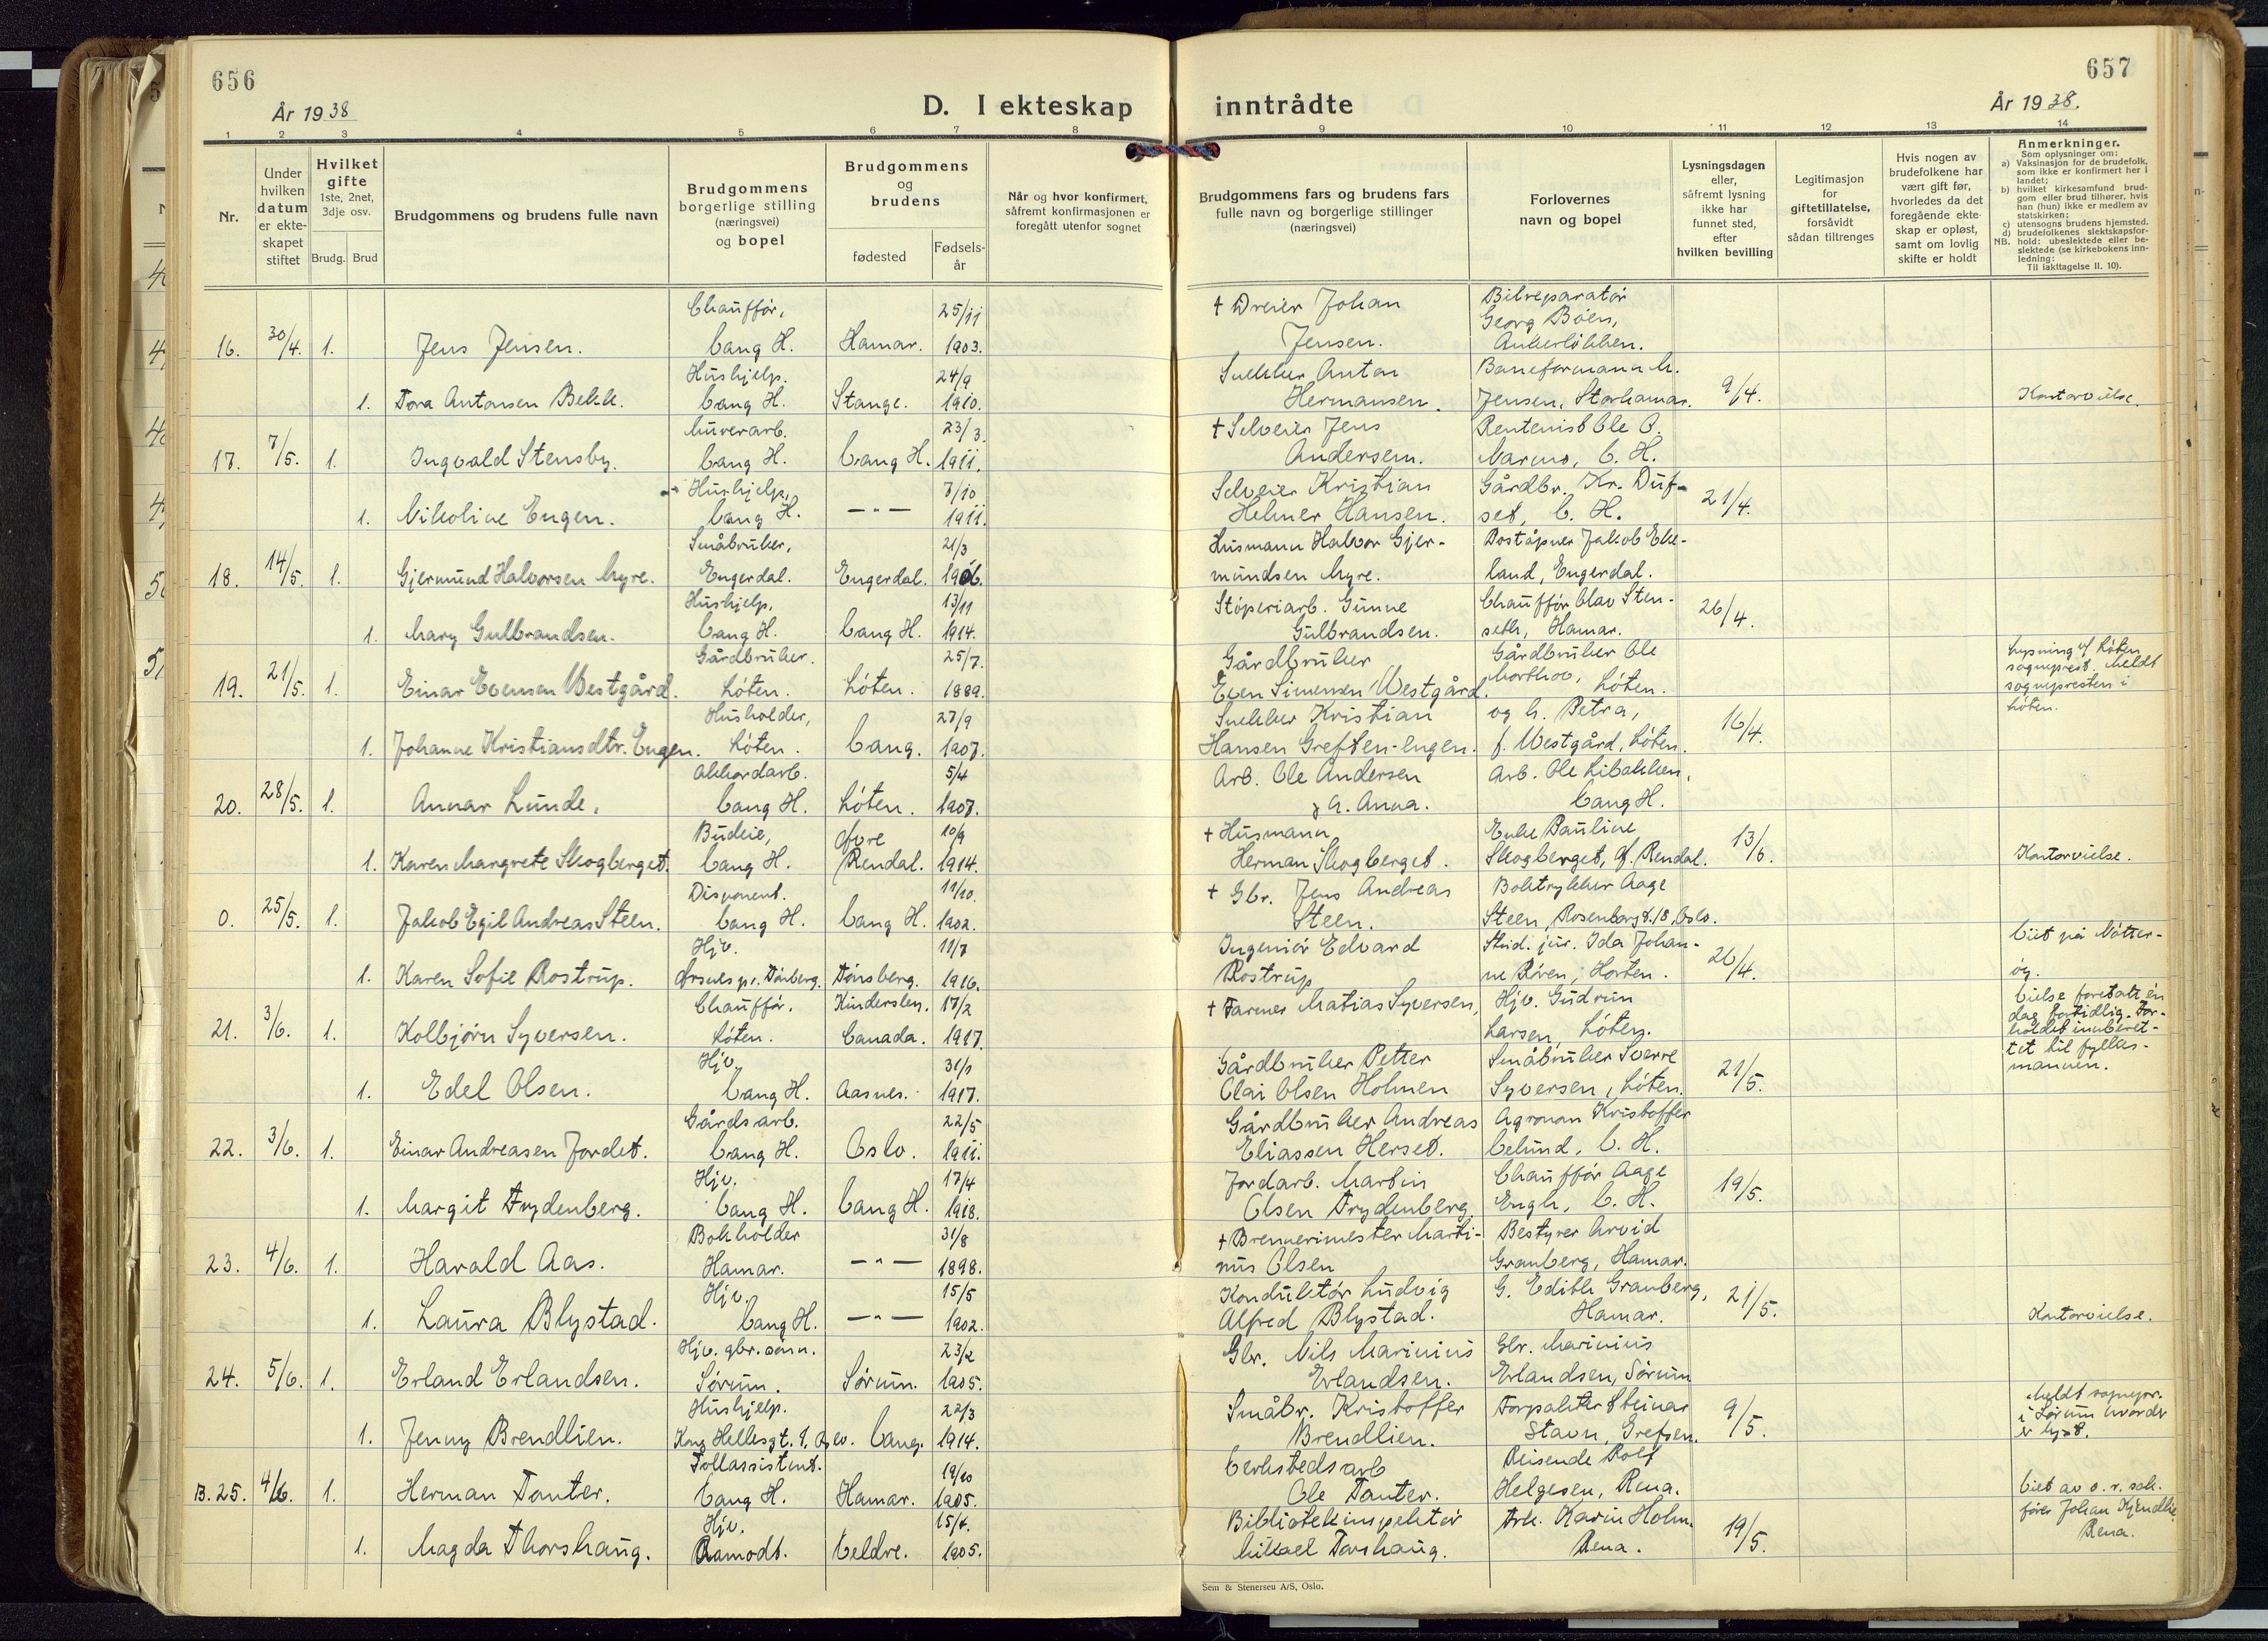 656
År 1938
D. I ekteskap
1 2 3 4 5 6 7 8
Nr.
Under
hvilken
datum
er ekte-
skapet
stiftet
Hvilket
gifte
1ste, 2net,
3dje osv.
Brudg. Brud
Brudgommens og brudens fulle navn
Brudgommens
borgerlige stilling
(næringsvei)
og bopel
Brudgommens
og
brudens
fødested
Fødsels-
år
Når og hvor konfirmert,
såfremt konfirmasjonen er
foregått utenfor sognet
Chauffør, 25/11
16. 30/4. 1. Jens Jensen. Vang H. Hamar. 1903.
Hushjelp. 24/9
1. Tora Antonsen Bekk. Vang H. Stange. 1910.
Murerarb. 23/3.
17. 7/5. 1. Ingvald Stensby. Vang H. Vang H. 1911.
Hushjelp, 7/10
1. Nikoline Engen. Vang H. —"— 1911.
Småbruker, 21/3
18. 14/5. 1. Gjermund Halvorsen Myre. Engerdal. Engerdal. 1906.
Hushjelp, 13/11
1. Mary Gulbrandsen. Vang H. Vang H. 1914.
Gårdbruker. 25/7.
19. 21/5. 1. Einar Evensen Westgård. Løten. Løten. 1889.
Husholder, 27/9
1. Johanne Kristiansdtr. Engen. Løten. Vang. 1907.
Akkordarb. 5/4
20. 28/5. 1. Annar Lunde. Vang H. Løten. 1907.
Budeie, Øvre 10/9
1. Karen Margrete Skogberget. Vang H. Rendal. 1914.
Disponent. 11/10.
0. 25/5. 1. Jakob Egil Andreas Steen. Vang H. Vang H. 1902.
Hjv. 11/7
1. Karen Sofie Rostrup. Ørsnes pr. Tønsberg. Tønsberg. 1916.
Chauffør. Kindersley, 17/2
21. 3/6. 1. Kolbjørn Syversen. Løten. Canada. 1917.
Hjv. 31/1
1. Edel Olsen. Vang H. Aasnes. 1917.
Gårdsarb. 22/5
22. 3/6. 1. Einar Andreasen Jordet. Vang H. Oslo. 1911.
Hjv. 17/4
1. Margit Frydenberg. Vang H. Vang H. 1918.
Bokholder 31/8
23. 4/6. 1. Harald Aas. Hamar. —"— 1898.
Hjv. 15/5
1. Laura Blystad. Vang H. —"— 1902.
Hjv. gbr. sønn. 23/2
24. 5/6. 1. Erland Erlandsen. Sørum. Sørum. 1905.
Hushjelp. 22/3
1. Jenny Brendlien. Kong Hellesgt. Vang. 1914.
Tollassistent. 19/10
B. 25. 4/6. 1. Herman Tanter. Vang H. Hamar. 1905.
Hjv. 15/4.
1. Magda Thorshaug. Aamodt. Veldre. 1905.
657
inntrådte
År 1938.
9 10 11 12 13 14
Brudgommens fars og brudens fars
fulle navn og borgerlige stillinger
(næringsvei)
Forlovernes
navn og bopel
Lysningsdagen
eller,
såfremt lysning
ikke har
funnet sted,
efter
hvilken bevilling
Legitimasjon
for
giftetillatelse,
forsåvidt
sådan tiltrenges
Hvis nogen av
brudefolkene har
vært gift før,
hvorledes da det
foregående ekte-
skap er opløst,
samt om lovlig
skifte er holdt
Anmerkninger.
Som oplysninger om:
a) Vaksinasjon for de brudefolk,
som ikke er konfirmert her i
landet;
b) hvilket kirkesamfund brud-
gom eller brud tilhører, hvis
han (hun) ikke er medlem av
statskirken;
c) utensogns brudens hjemsted.
d) brudefolkenes slektskapsfor-
NB. hold: ubeslektede eller be-
slektede (se kirkebokens inn-
ledning:
Til iakttagelse II. 10).
† Dreier Johan Bilreparatør
Georg Bøen,
Jensen. Ankerløkken.
Snekker Anton Baneformann M.
Hermansen. Jensen, Storhamar. 9/4. Kontorvielse.
† Selveier Jens Rentenist Ole O.
Andersen. Narmo, V. H.
Selveier Kristian Gårdbr. Kr. Duf-
Helmer Hansen. set, V. H. 21/4.
Husmann Halvor Gjer- Poståpner Jakob Eke-
mundsen Myre. land, Engerdal.
Støperiarb. Gunne Chauffør Olav Sten-
Gulbrandsen. seth, Hamar. 26/4.
Gårdbruker Gårdbruker Ole Lysning v/ Løten
Even Simensen Westgård. Morthov, Løten. sogneprest. Meldt
sognepresten i
Løten.
Snekker Kristian og h. Petra,
Hansen Greften-Engen. f. Westgård, Løten. 16/4.
Arb. Ole Andersen Arb. Ole Libakken,
& h. Anna. Vang H.
† Husmann Enke Pauline
Herman Skogberget. Skogberget, Ø. Rendal. 13/5. Kontorvielse.
† Gbr. Jens Andreas Boktrykker Aage
Steen. Steen, Rosenborggt. 18, Oslo.
Ingeniør Edvard Stud. jur. Ida Johan- Viet på Nøtter-
Rostrup ne Røren, Horten. 26/4. øy.
† Farmer Matias Syversen, Hjv. Gudrun Vielse foretatt én
Larsen, Løten. dag fortidlig. For-
holdet innberet-
tet til fylkes-
mannen.
Gårdbruker Petter Småbruker Sverre
Olai Olsen Holmen Syversen, Løten. 21/5.
Gårdbruker Andreas Agronom Kristoffer
Eliassen Herset. Velund, V. H.
Jordarb. Martin Chauffør Aage
Olsen Frydenberg. Engh, V. H. 19/5.
† Brennerimester Marti- Bestyrer Arvid
nus Olsen Granberg, Hamar.
Konduktør Ludvig G. Edith Granberg,
Alfred Blystad. Hamar. 21/5. Kontorvielse.
Gbr. Nils Marinius Gbr. Marinius
Erlandsen. Erlandsen, Sørum
Småbr. Kristoffer Forpakter Steinar 9/5. Meldt sognepr.
Brendlien. Stavn, Grefsen. i Sørum hvor der
er lyst.
Verkstedsarb Reisende Rolf
Ole Tanter. Helgesen, Rena. Viet av o. r. sak-
fører Johan Kjendlie,
Rena.
Bibliotekinspektør Frk. Karin Holm.
Mikael Torshaug. Rena. 19/5.
Sem & Stenersen A/S, Oslo.